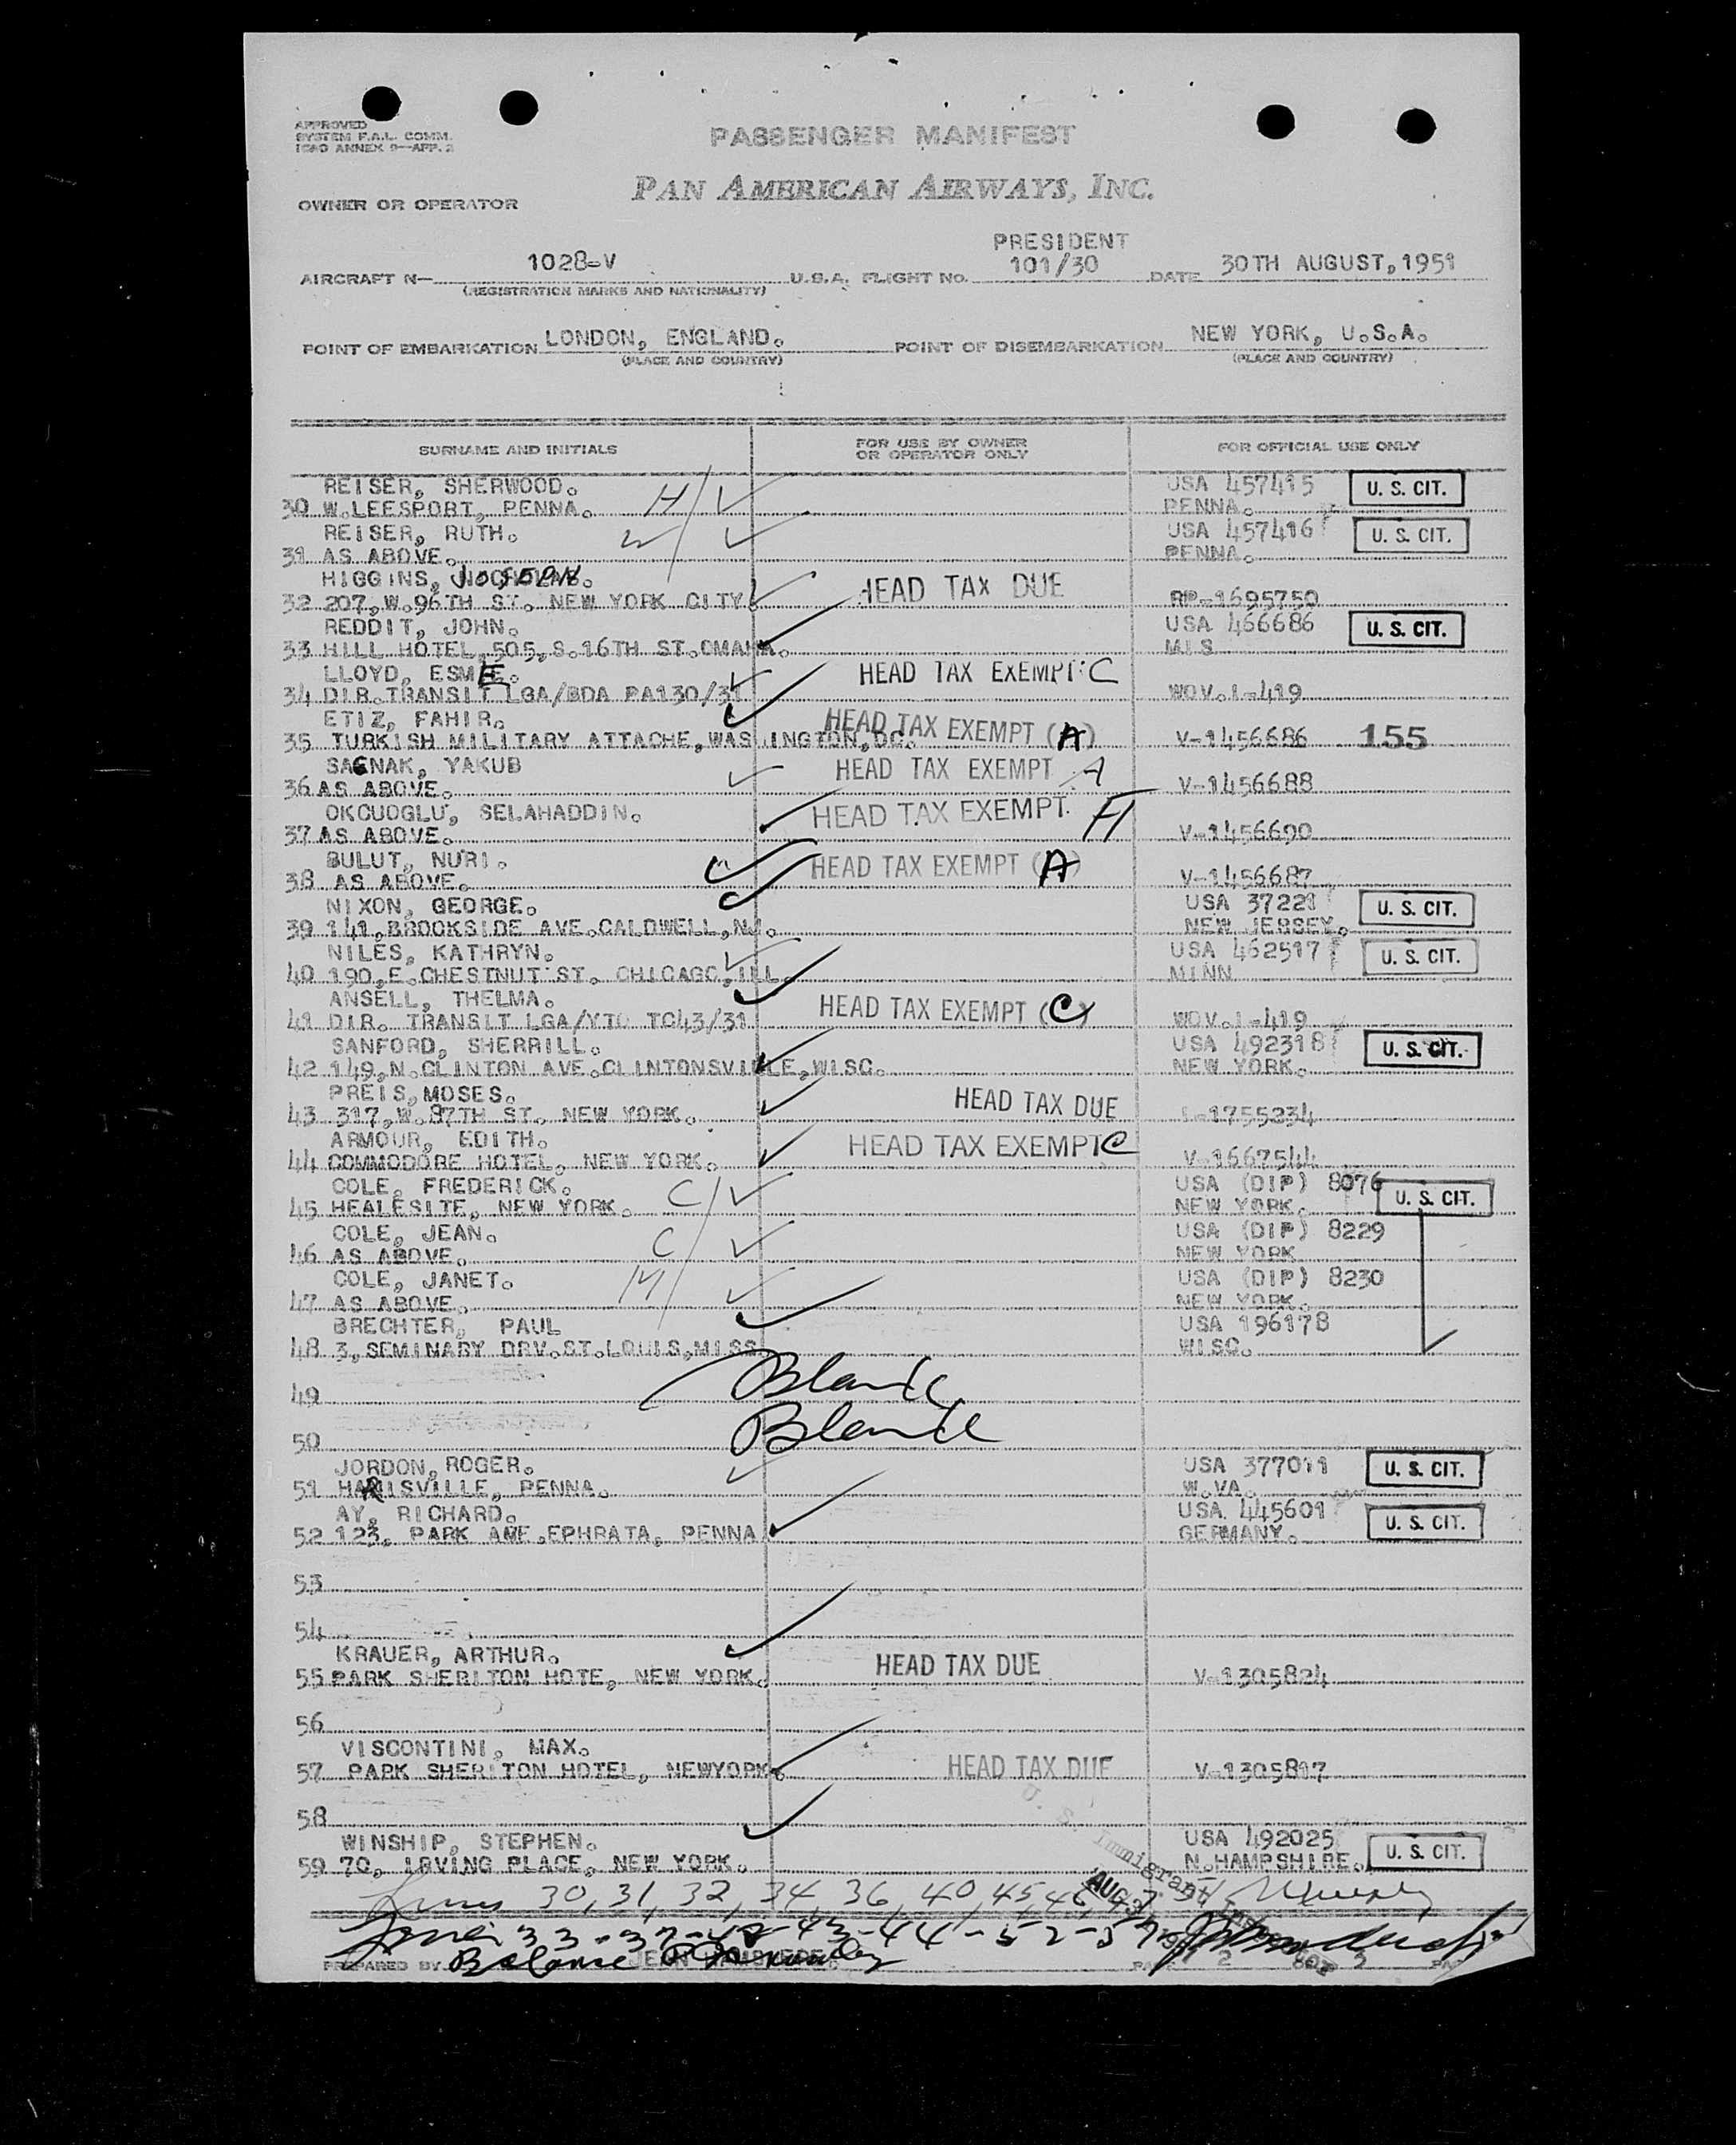 APPROVED
SYSTEM F.A.L. COMM.
ICAO ANNEX 9—APP. 2
PASSENGER MANIFEST
PAN AMERICAN AIRWAYS, INC.
OWNER OR OPERATOR
PRESIDENT
AIRCRAFT N— 1028-V U.S.A. FLIGHT NO. 101/30 DATE 30TH AUGUST, 1951
(REGISTRATION MARKS AND NATIONALITY)
POINT OF EMBARKATION LONDON, ENGLAND. POINT OF DISEMBARKATION NEW YORK, U.S.A.
(PLACE AND COUNTRY) (PLACE AND COUNTRY)
SURNAME AND INITIALS FOR USE BY OWNER OR OPERATOR ONLY FOR OFFICIAL USE ONLY
REISER, SHERWOOD. H USA 457415 U. S. CIT.
30 W.LEESPORT, PENNA. PENNA.
REISER, RUTH. W USA 457416 U. S. CIT.
31 AS ABOVE. PENNA.
HIGGINS, JOSEPH. HEAD TAX DUE
32 207,W.96TH ST. NEW YORK CITY. RP-1695750
REDDIT, JOHN. USA 466686 U. S. CIT.
33 HILL HOTEL,505,S.16TH ST.OMAHA. MIS
LLOYD, ESMEE. HEAD TAX EXEMPT C
34 DIR.TRANSIT LGA/BDA PA130/31 WOV.I-419
ETIZ, FAHIR. HEAD TAX EXEMPT (A)
35 TURKISH MILITARY ATTACHE,WASHINGTON,DC. V-1456686 155
SAGNAK, YAKUB HEAD TAX EXEMPT A
36 AS ABOVE. V-1456688
OKCUOGLU, SELAHADDIN. HEAD TAX EXEMPT. A
37 AS ABOVE. V-1456690
BULUT, NURI. HEAD TAX EXEMPT (A)
38 AS ABOVE. V-1456687
NIXON, GEORGE. USA 37221 U. S. CIT.
39 141,BROOKSIDE AVE.CALDWELL,NJ. NEW JERSEY.
NILES, KATHRYN. USA 462517 U. S. CIT.
40 190,E.CHESTNUT ST. CHICAGO,ILL. MINN
ANSELL, THELMA. HEAD TAX EXEMPT (C)
41 DIR. TRANSIT LGA/YTO TC43/31 WOV.I-419
SANFORD, SHERRILL. USA 492318 U. S. CIT.
42 149,N.CLINTON AVE.CLINTONSVILLE,WISC. NEW YORK.
PREIS,MOSES. HEAD TAX DUE
43 317,W.87TH ST. NEW YORK. I-1755234
ARMOUR, EDITH. HEAD TAX EXEMPT C
44 COMMODORE HOTEL, NEW YORK. V-1667544
COLE, FREDERICK. C USA (DIP) 8076 U. S. CIT.
45 HEALESITE, NEW YORK. NEW YORK.
COLE, JEAN. C USA (DIP) 8229
46 AS ABOVE. NEW YORK
COLE, JANET. M USA (DIP) 8230
47 AS ABOVE. NEW YORK.
BRECHTER, PAUL USA 196178
48 3,SEMINARY DRV.ST.LOUIS,MISS. WISC.
49 Blank
50 Blank
JORDON,ROGER. USA 377011 U. S. CIT.
51 HARISVILLE, PENNA. W.VA.
AY, RICHARD. USA 445601 U. S. CIT.
52 123, PARK AVE.EPHRATA, PENNA. GERMANY.
53
54
KRAUER, ARTHUR. HEAD TAX DUE
55 PARK SHERITON HOTE, NEW YORK. V-1305824
56
VISCONTINI, MAX.
57 PARK SHERITON HOTEL, NEWYORK. HEAD TAX DUE V-1305817
58
WINSHIP, STEPHEN. USA 492025 U. S. CIT.
59 70, IRVING PLACE, NEW YORK. N.HAMPSHIRE.
U. S. Immigrant
AUG 31
Lines 30, 31, 32, 34, 36, 40, 45, 46, 47
Lines 33-37-42-43-44-52-57
PREPARED BY Balance PAGE 2 OF 3